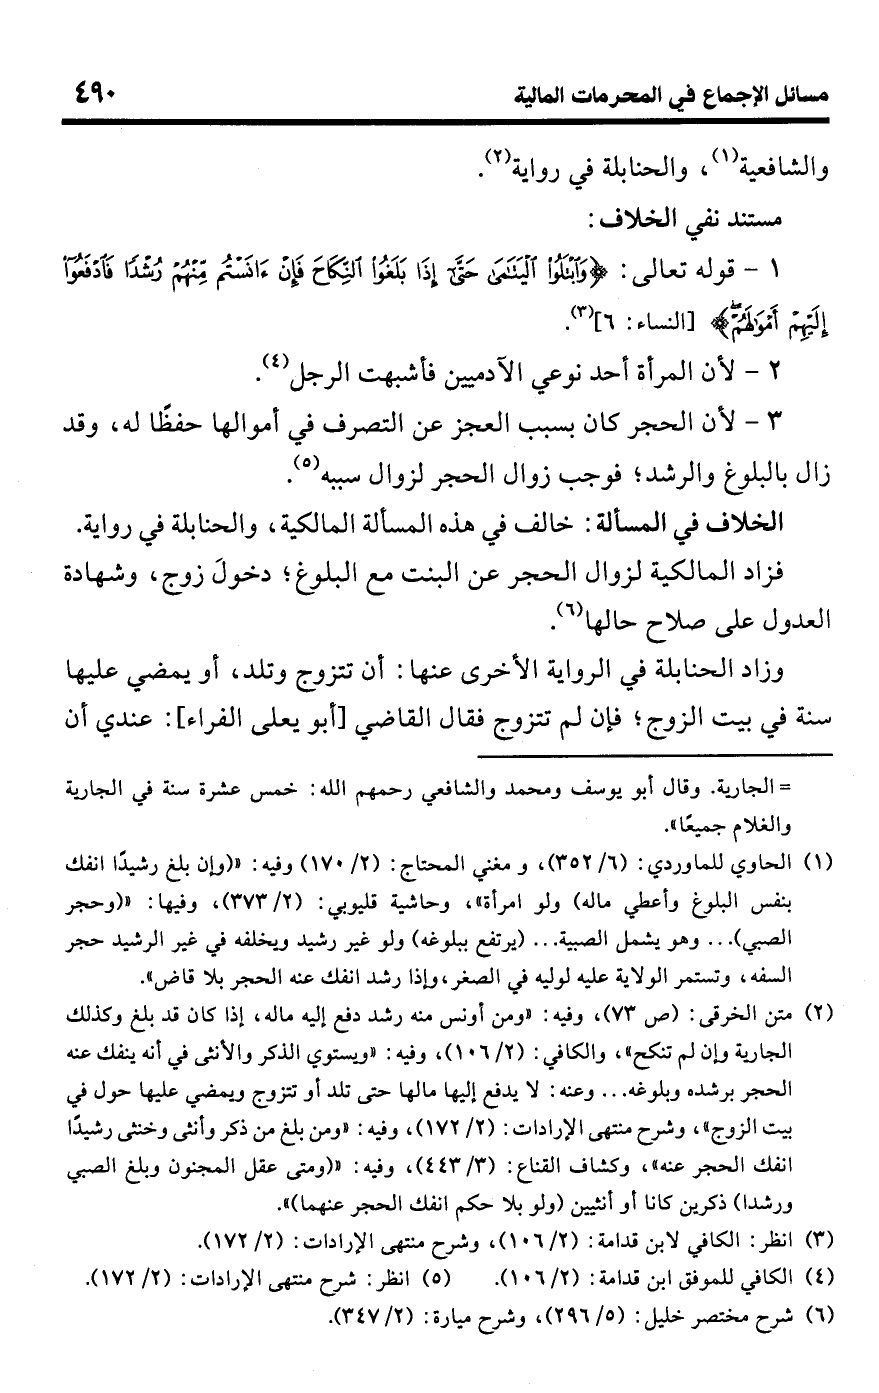 مسائل الإجماع في المحرمات المالية ٤٩٠
والشافعية(١)، والحنابلة في رواية(٢).
مستند نفي الخلاف:
١ - قوله تعالى: ﴿وَٱبْتَلُوا۟ ٱلْيَتَٰمَىٰ حَتَّىٰٓ إِذَا بَلَغُوا۟ ٱلنِّكَاحَ فَإِنْ ءَانَسْتُم مِّنْهُمْ رُشْدًا فَٱدْفَعُوٓا۟
إِلَيْهِمْ أَمْوَٰلَهُمْ ۖ﴾ [النساء: ٦](٣).
٢ - لأن المرأة أحد نوعي الآدميين فأشبهت الرجل(٤).
٣ - لأن الحجر كان بسبب العجز عن التصرف في أموالها حفظًا له، وقد
زال بالبلوغ والرشد؛ فوجب زوال الحجر لزوال سببه(٥).
الخلاف في المسألة: خالف في هذه المسألة المالكية، والحنابلة في رواية.
فزاد المالكية لزوال الحجر عن البنت مع البلوغ؛ دخولَ زوج، وشهادة
العدول على صلاح حالها(٦).
وزاد الحنابلة في الرواية الأخرى عنها: أن تتزوج وتلد، أو يمضي عليها
سنة في بيت الزوج؛ فإن لم تتزوج فقال القاضي [أبو يعلى الفراء]: عندي أن
= الجارية. وقال أبو يوسف ومحمد والشافعي رحمهم الله: خمس عشرة سنة في الجارية
والغلام جميعًا».
(١) الحاوي للماوردي: (٦/ ٣٥٢)، و مغني المحتاج: (٢/ ١٧٠) وفيه: «(وإن بلغ رشيدًا انفك
بنفس البلوغ وأعطي ماله) ولو امرأة»، وحاشية قليوبي: (٢/ ٣٧٣)، وفيها: «(وحجر
الصبي)... وهو يشمل الصبية... (يرتفع ببلوغه) ولو غير رشيد ويخلفه في غير الرشيد حجر
السفه، وتستمر الولاية عليه لوليه في الصغر،وإذا رشد انفك عنه الحجر بلا قاض».
(٢) متن الخرقي: (ص ٧٣)، وفيه: «ومن أونس منه رشد دفع إليه ماله، إذا كان قد بلغ وكذلك
الجارية وإن لم تنكح»، والكافي: (٢/ ١٠٦)، وفيه: «ويستوي الذكر والأنثى في أنه ينفك عنه
الحجر برشده وبلوغه... وعنه: لا يدفع إليها مالها حتى تلد أو تتزوج ويمضي عليها حول في
بيت الزوج»، وشرح منتهى الإرادات: (٢/ ١٧٢)، وفيه: «ومن بلغ من ذكر وأنثى وخنثى رشيدًا
انفك الحجر عنه»، وكشاف القناع: (٣/ ٤٤٣)، وفيه: «(ومتى عقل المجنون وبلغ الصبي
ورشدا) ذكرين كانا أو أنثيين (ولو بلا حكم انفك الحجر عنهما)».
(٣) انظر: الكافي لابن قدامة: (٢/ ١٠٦)، وشرح منتهى الإرادات: (٢/ ١٧٢).
(٤) الكافي للموفق ابن قدامة: (٢/ ١٠٦). (٥) انظر: شرح منتهى الإرادات: (٢/ ١٧٢).
(٦) شرح مختصر خليل: (٥/ ٢٩٦)، وشرح ميارة: (٢/ ٣٤٧).